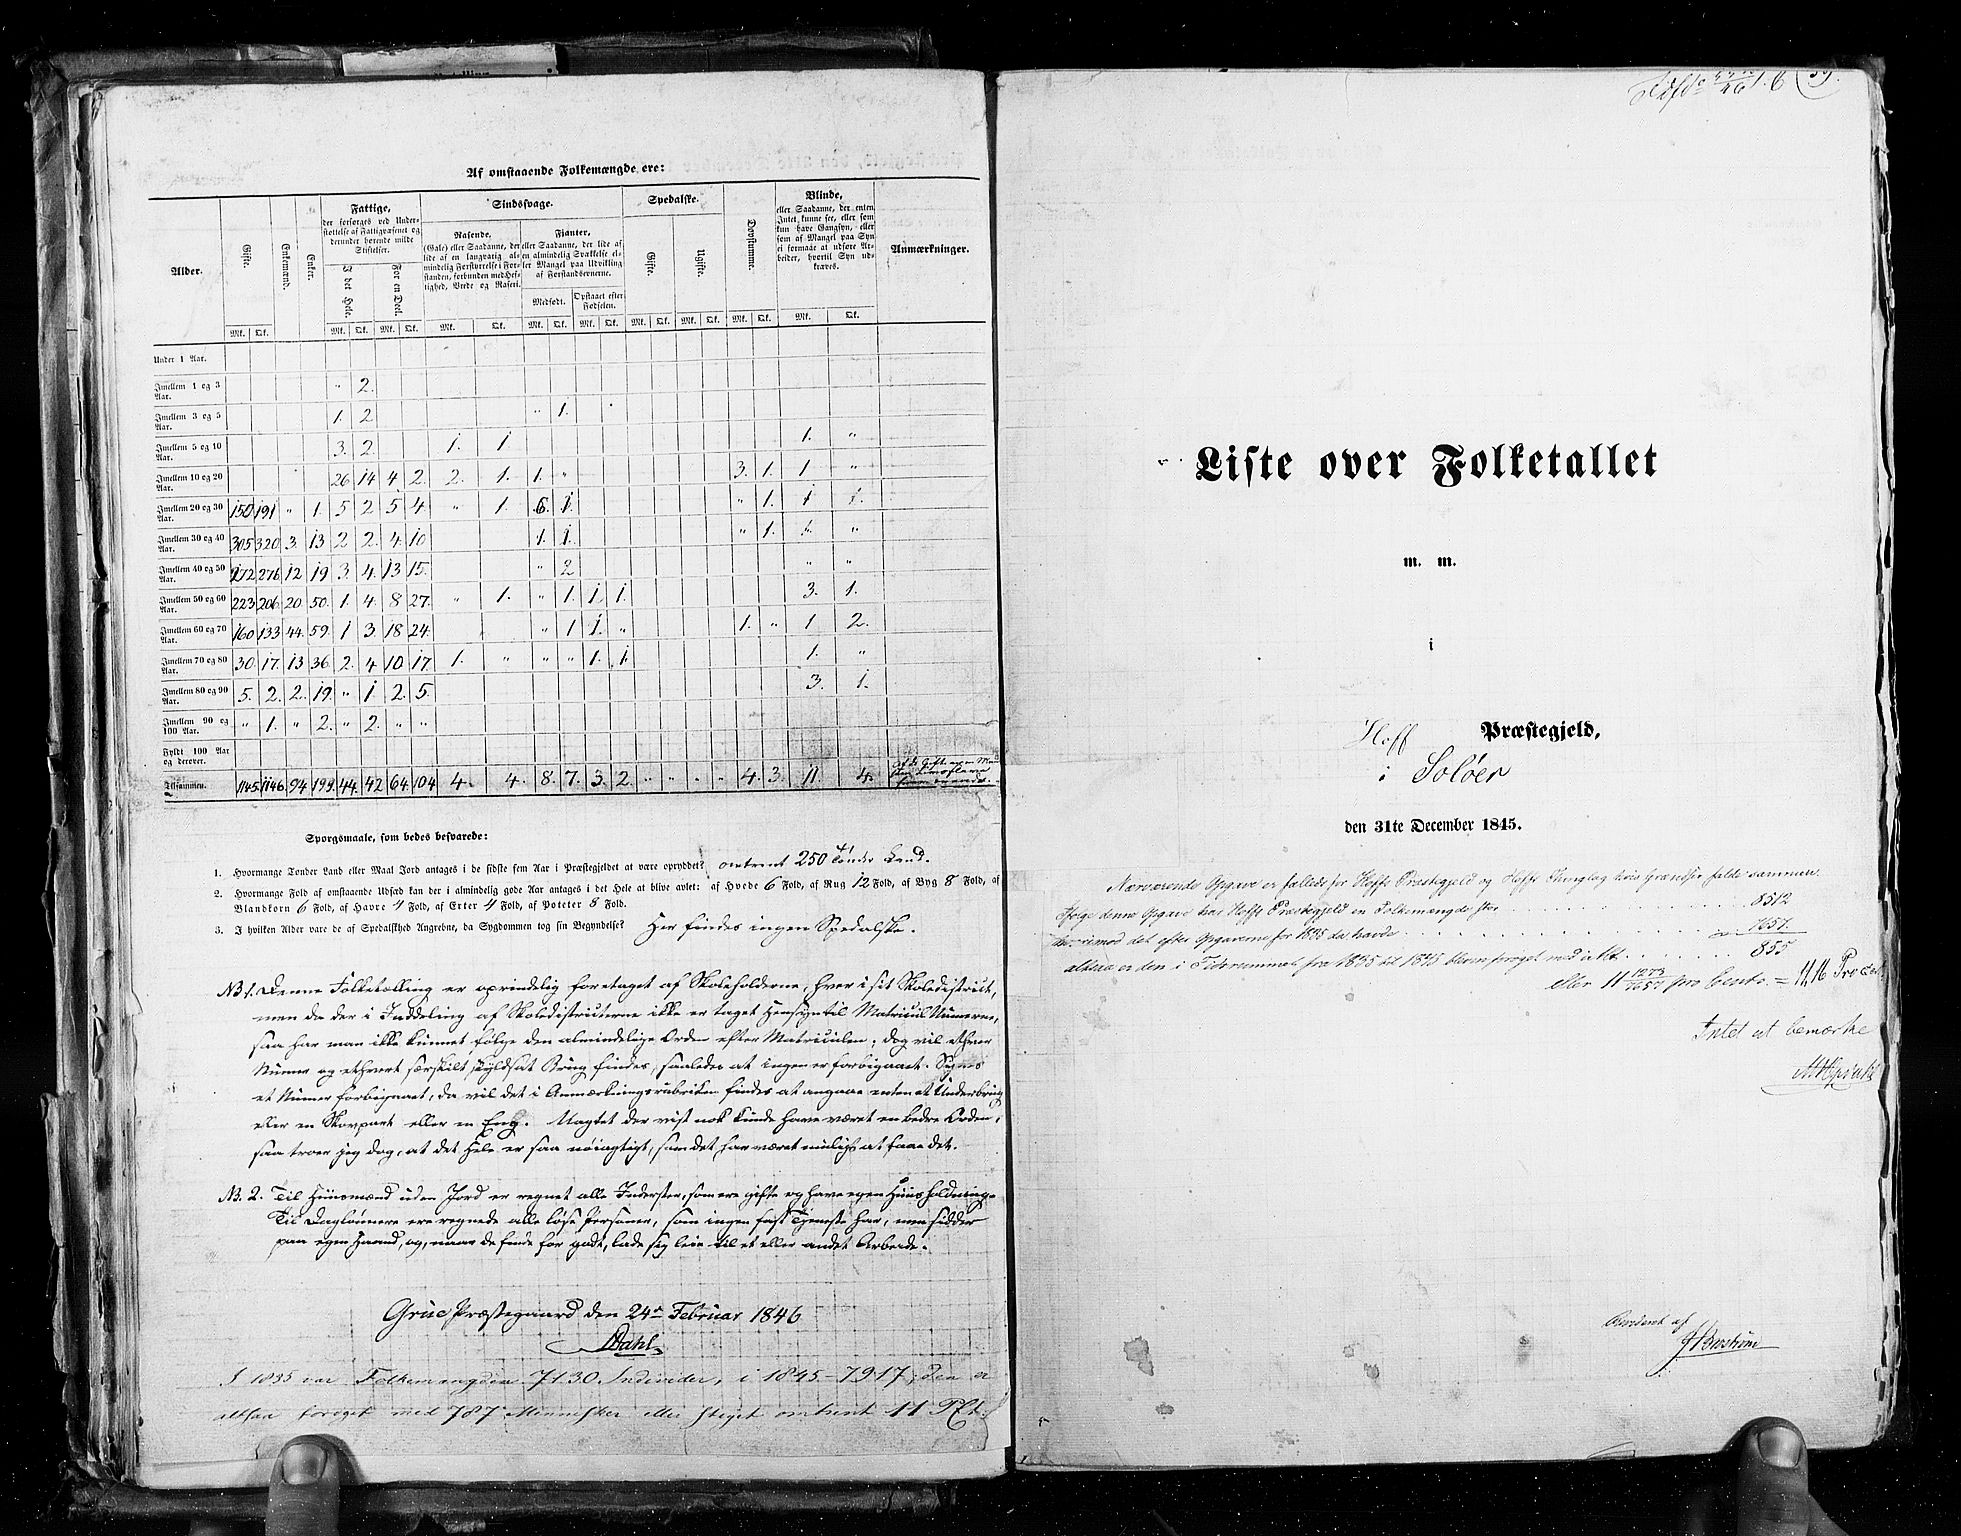 Af omstaaende Folkemængde ere:
Alder. Gifte. Enkemænd. Enker. Fattige, der forsørges ved Understøttelse af Fattigvæsenet og derunder hørende milde Stiftelser. Sindssvage. Spedalske. Døvstumme. Blinde, eller Saadanne, der enten Intet kunne see, eller som kun have Gangsyn, eller som af Mangel paa Syn ei formaae at udføre Arbeider, hvortil Syn udkræves. Anmærkninger.
I det Hele. For en Deel. Rasende, (Gale) eller Saadanne, der lide af en langvarig almindelig Forstyrrelse i Forstanden, forbunden med Heftighed, Vrede og Raseri. Fjanter, eller Saadanne, der lide af en almindelig Svækkelse eller Mangel paa Udvikling af Forstandsevnerne. Gifte. Ugifte.
Medfødt. Opstaaet efter Fødselen.
Mk. Qk. Mk. Qk. Mk. Qk. Mk. Qk. Mk. Qk. Mk. Qk. Mk. Qk. Mk. Qk. Mk. Qk. Mk. Qk.
Under 1 Aar.
Imellem 1 og 3 Aar. " 2.
Imellem 3 og 5 Aar. 1. 2 " 1.
Imellem 5 og 10 Aar. 3. 2. 1. 1 1. "
Imellem 10 og 20 Aar. 26 14 4 2. 2. 1. 1. " 3. 1. 1 "
Imellem 20 og 30 Aar. 150 191 " 1. 5 2 5 4. " 1. 6. 1. " 1. 1 1.
Imellem 30 og 40 Aar. 305 320. 3. 13 2 2. 4. 10 1. 1. " 1. 1. "
Imellem 40 og 50 Aar. 272 276 12 19 3. 4. 13 15. " 2 " "
Imellem 50 og 60 Aar. 223 206 20 50. 1. 4. 8 27. " 1. " 1. 1. 1. 3. 1.
Imellem 60 og 70 Aar. 160 133 44. 59. 1 3. 18 24. " 1 1. " 1. " 1 2.
Imellem 70 og 80 Aar. 30. 17. 13 36. 2. 4 10 17. 1. " " " 1. 1 1. "
Imellem 80 og 90 Aar. 5. 2. 2. 19. " 1 2. 5. 3. 1.
Imellem 90 og 100 Aar. " 1. " 2. " 2. " "
Fyldt 100 Aar og derover.
Tilsammen. 1145. 1146 94. 199. 44. 42 64. 104 4. 4. 8. 7. 3. 2. " " " " 4. 3. 11 4.
Spørgsmaale, som bedes besvarede:
1. Hvormange Tønder Land eller Maal Jord antages i de sidste fem Aar i Præstegjeldet at være opryddet? omtrent 250 Tønder Land.
2. Hvormange Fold af omstaaende Udsæd kan der i almindelig gode Aar antages i det Hele at blive avlet: af Hvede 6 Fold, af Rug 12 Fold, af Byg 8 Fold, af
Blandkorn 6 Fold, af Havre 4 Fold, af Erter 4 Fold, af Poteter 8 Fold.
3. I hvilken Alder vare de af Spedalskhed Angrebne, da Sygdommen tog sin Begyndelse? Her findes ingen Spedalske.
NB 1. Denne Folketælling er oprindelig foretaget af Skoleholderne, hver i sit Skoledistrict,
men da der i Inddeling af Skoledistricterne ikke er taget Hensyn til Matricul Numerne,
saa har man ikke kunnet følge den almindelige Orden efter Matriculen; dog vil ethvert
Numer og ethvert særskilt skyldsat Brug findes, saaledes at ingen er forbigaaet. Synes
et Numer forbigaaet, da vil det i Anmærkningsrubriken findes at angaae enten et Underbrug
eller en Skovpart eller en Eng. Uagtet der vist nok kunde have været en bedre Orden,
saa troer jeg dog, at det Hele er saa nøiagtigt, som det har været muligt at faae det.
NB. 2. Til Huusmænd uden Jord er regnet alle Inderster, som ere gifte og have egen Huusholdning.
Til Daglønnere ere regnede alle løse Personer, som ingen fast Tjeneste har, men sidder
paa egen Haand, og, naar de finde for godt, lade sig leie til et eller andet Arbeide.
Grue Præstegaard den 24de Februar 1846
Dahl
I 1835 var Folkemængden 7130 Individer, i 1845 - 7917, den er
altsaa forøget med 787 Mennesker eller steget omtrent 11 PCt.
Liste over Folketallet
m. m.
i
Hoff Præstegjeld,
i Soløer
den 31te December 1845.
Nærværende Opgave er fælleds for Hoffs Præstegjeld og Hoffs Thinglag hvis Grændser falde sammen.
Ifølge denne Opgave har Hoffs Præstegjeld en Folkemængde stor 8512
hvorimod det efter Opgaverne for 1835 da havde 7657.
altsaa er den i Tidsrummet fra 1835 til 1845 bleven forøget med i Alt 855
eller 11 1273/7657 pro Cento. = 11,16 Procent
Intet at bemærke
Revideret af